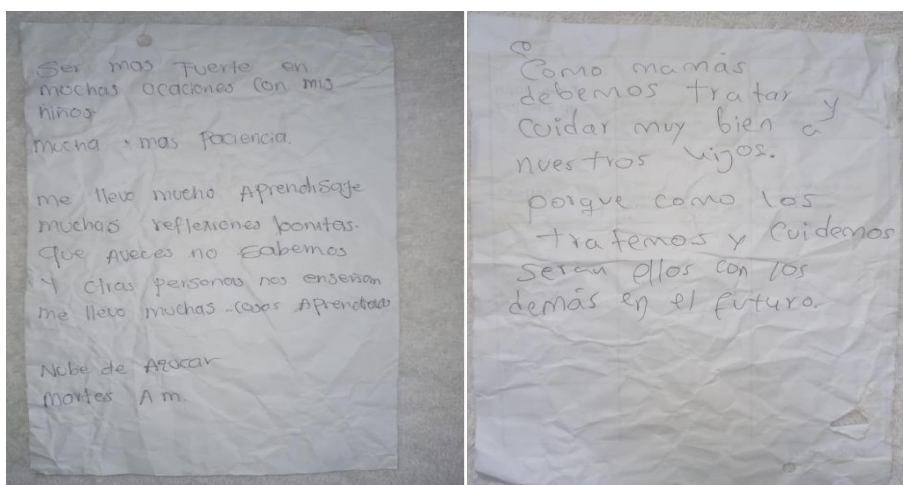 Ser mas Fuerte en
muchas ocaciones con mis
niños.
mucha mas paciencia.
me llevo mucho Aprendisaje
muchas reflexiones bonitas.
que Aveces no sabemos
Y otras personas nos enseñan
me llevo muchas cosas Aprendidas
Nube de Azucar
Martes Am.
Como mamás
debemos tratar y
cuidar muy bien a
nuestros hijos.
porque como los
tratemos y cuidemos
seran ellos con los
demás en el futuro.